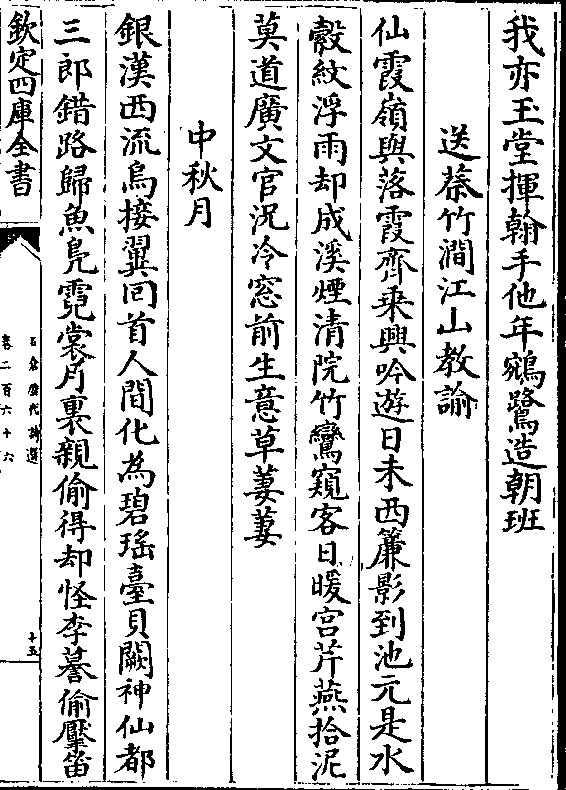 我亦玉堂揮翰手他年鵷鷺造朝班
送蔡竹澗江山教諭
仙霞嶺與落霞齊乗興吟遊日未西簾影到池元是水
縠紋浮雨却成溪煙清院竹鸞窺客日暖宫芹燕拾泥
莫道廣文官况冷窓前生意草萋萋
中秋月
銀漢西流烏接翼囘首人間化為碧瑶臺貝闕神仙都
三郎錯路歸魚鳬霓裳月裏親偷得却怪李謩偷擪笛
欽定四庫全書
石倉歴代詩選
卷二百六十六
十五